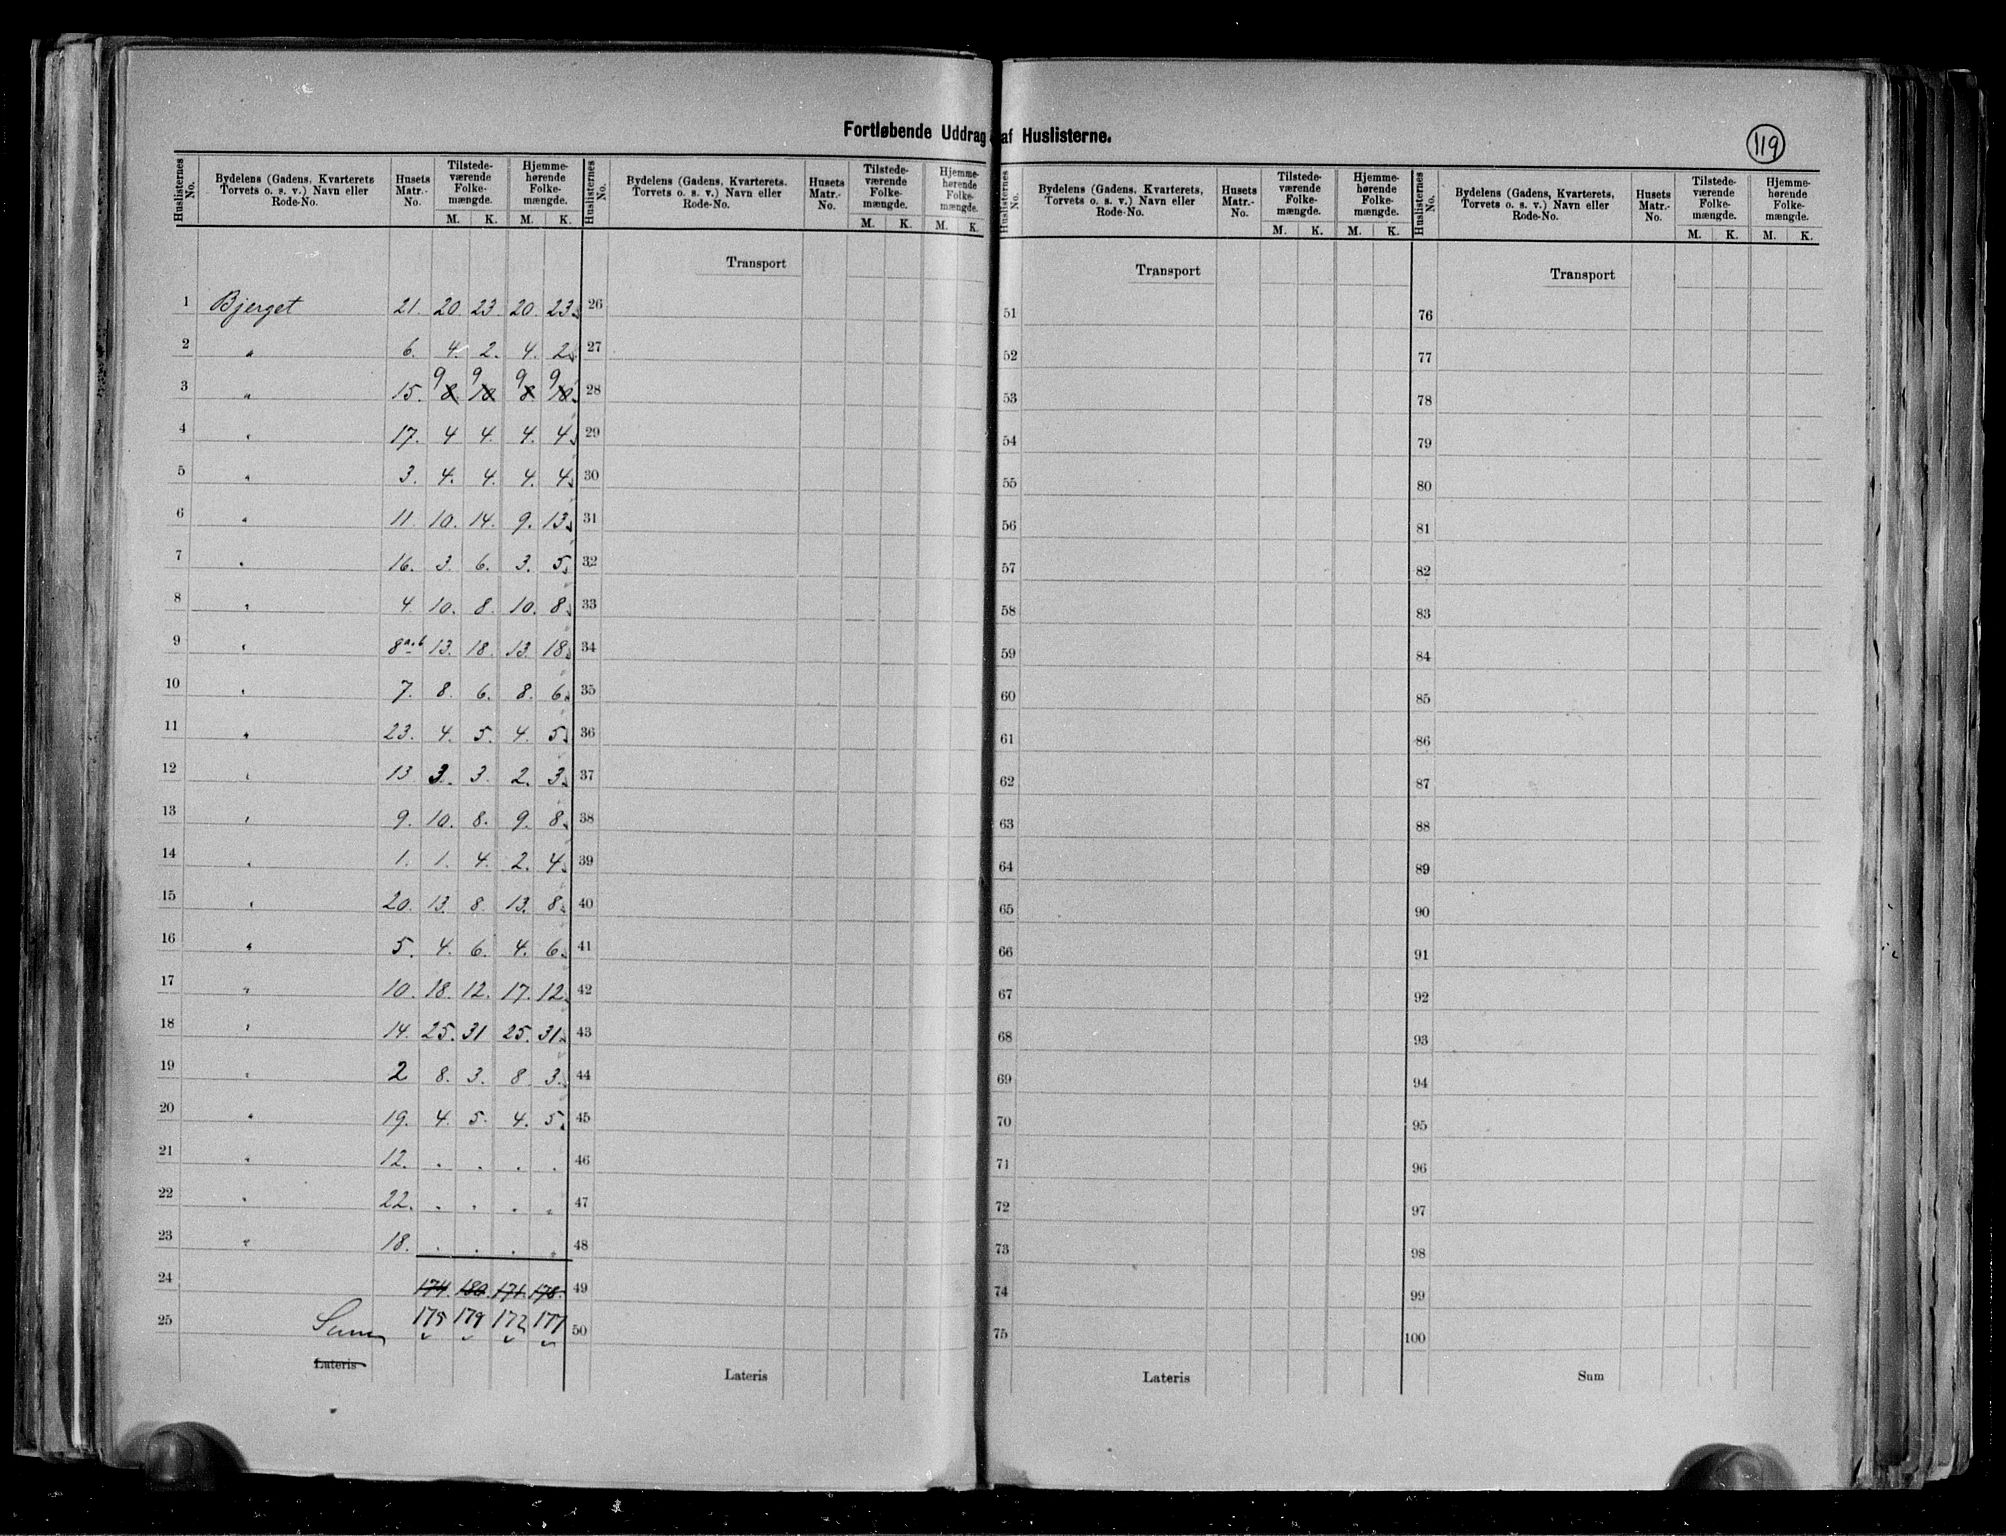 Fortløbende Uddrag af Huslisterne.
119
Huslisternes No. Bydelens (Gadens, Kvarterets Torvets o. s. v.) Navn eller Rode-No. Husets Matr.-No. Tilstedeværende Folkemængde. M. K. Hjemmehørende Folkemængde. M. K.
Huslisternes No. Bydelens (Gadens, Kvarterets. Torvets o. s. v.) Navn eller Rode-No. Husets Matr.-No. Tilstedeværende Folkemængde. M. K. Hjemmehørende Folkemængde. M. K.
Huslisternes No. Bydelens (Gadens, Kvarterets, Torvets o. s. v.) Navn eller Rode-No. Husets Matr.-No. Tilstedeværende Folkemængde. M. K. Hjemmehørende Folkemængde. M. K.
Huslisternes No. Bydelens (Gadens, Kvarterets, Torvets o. s. v.) Navn eller Rode-No. Husets Matr.-No. Tilstedeværende Folkemængde. M. K. Hjemmehørende Folkemængde. M. K.
Transport Transport Transport
1 Bjerget 21. 20 23 20. 23. 26 51 76
2 " 6. 4. 2. 4. 2. 27 52 77
9 9 9 9
3 " 15. 8 10 8 10. 28 53 78
4 " 17. 4 4. 4. 4. 29 54 79
5 " 3. 4. 4. 4. 4. 30 55 80
6 " 11. 10. 14. 9. 13. 31 56 81
7 " 16. 3. 6. 3. 5. 32 57 82
8 " 4. 10. 8. 10. 8. 33 58 83
9 " 8 a.b 13. 18. 13. 18. 34 59 84
10 " 7. 8. 6. 8. 6. 35 60 85
11 " 23. 4. 5. 4. 5. 36 61 86
12 " 13 3. 3. 2. 3. 37 62 87
13 " 9. 10. 8. 9. 8. 38 63 88
14 " 1. 1. 4. 2. 4. 39 64 89
15 " 20. 13. 8. 13. 8. 40 65 90
16 " 5. 4. 6. 4. 6. 41 66 91
17 " 10. 18. 12. 17. 12. 42 67 92
18 " 14. 25. 31 25. 31. 43 68 93
19 " 2 8. 3. 8. 3. 44 69 94
20 " 19. 4. 5. 4. 5. 45 70 95
21 " 12. . . . . 46 71 96
22 " 22. . . . . 47 72 97
23 " 18. . . . . 48 73 98
24 174. 180. 171. 178. 49 74 99
25 Sum 175 179 172 177 50 75 100
Lateris Lateris Lateris Sum